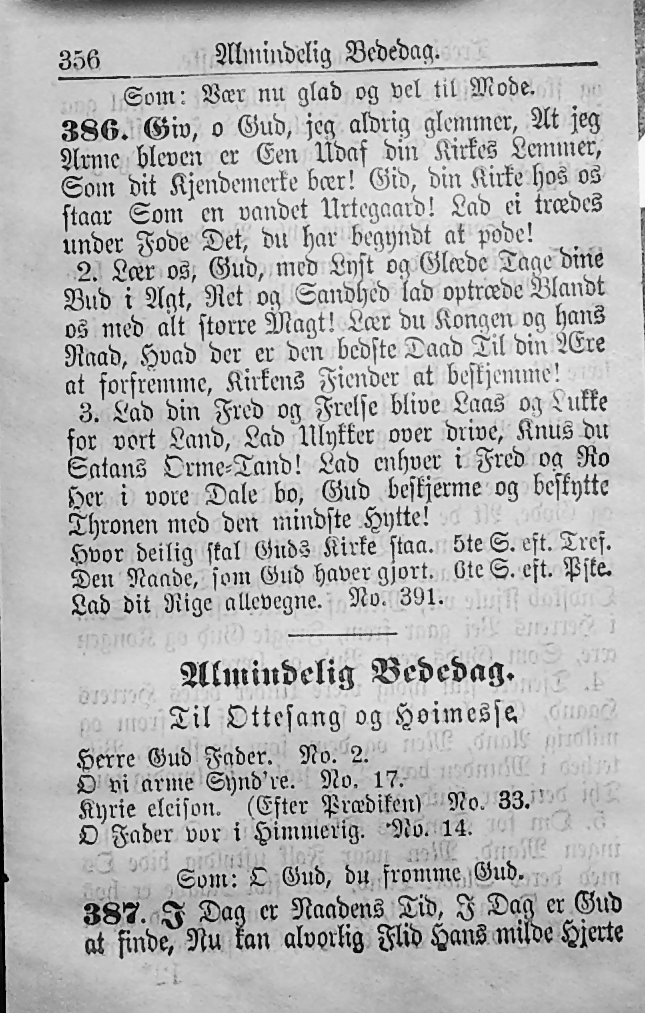 356 Almindelig Bededag.
Som: Vær nu glad og vel til Mode.
386. Giv, o Gud, jeg aldrig glemmer, At jeg
Arme bleven er Een Udaf din Kirkes Lemmer,
Som dit Kjendemerke bær! Gid, din Kirke hos os
staar Som en vandet Urtegaard! Lad ei trædes
under Fode Det, du har begyndt at pode!
2. Lær os, Gud, med Lyst og Glæde Tage dine
Bud i Agt, Ret og Sandhed lad optræde Blandt
os med alt større Magt! Lær du Kongen og hans
Raad, Hvad der er den bedste Daad Til din Ære
at forfremme, Kirkens Fiender at beskjemme!
3. Lad din Fred og Frelse blive Laas og Lukke
for vort Land, Lad Ulykker over drive, Knus du
Satans Orme-Tand! Lad enhver i Fred og Ro
Her i vore Dale bo, Gud beskjerme og beskytte
Thronen med den mindste Hytte!
Hvor deilig skal Guds Kirke staa. 5te S. eft. Tref.
Den Naade, som Gud haver gjort. 6te S. eft. Pske.
Lad dit Rige allevegne. No. 391.
Almindelig Bededag.
Til Ottesang og Høimesse
Herre Gud Fader. No. 2.
O vi arme Synd're. No. 17.
Kyrie eleison. (Efter Prædiken) No. 33.
O Fader vor i Himmerig. No. 14.
Som: O Gud, du fromme Gud.
387. I Dag er Naadens Tid, I Dag er Gud
at finde, Nu kan alvorlig Flid Hans milde Hjerte